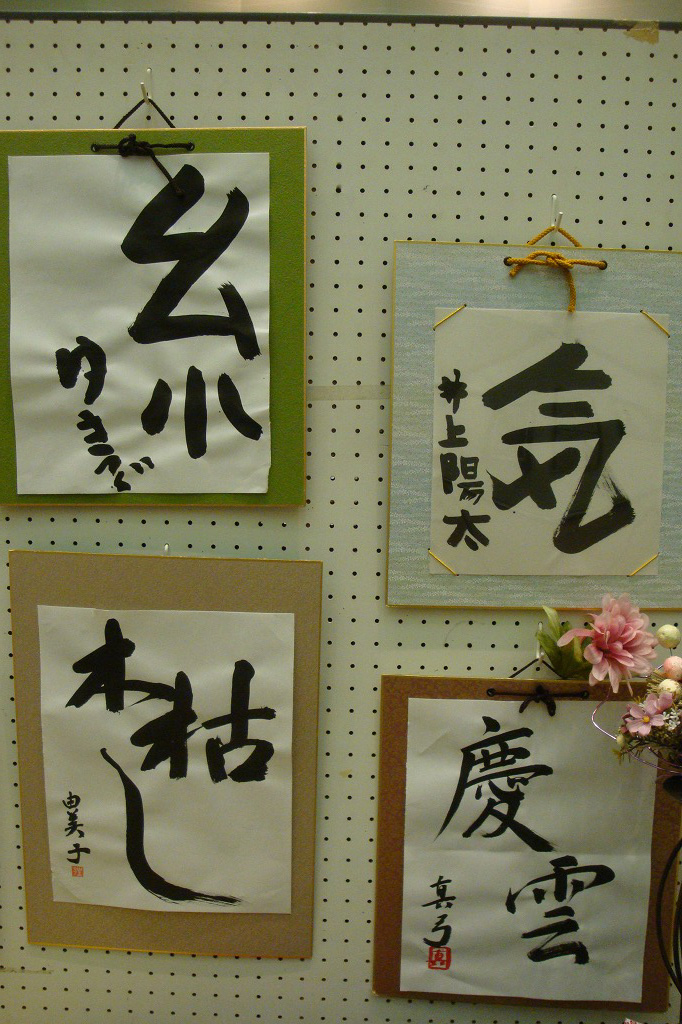 糸
ゆきつぐ
気
井上陽太
木枯し
由美子
慶雲
真弓